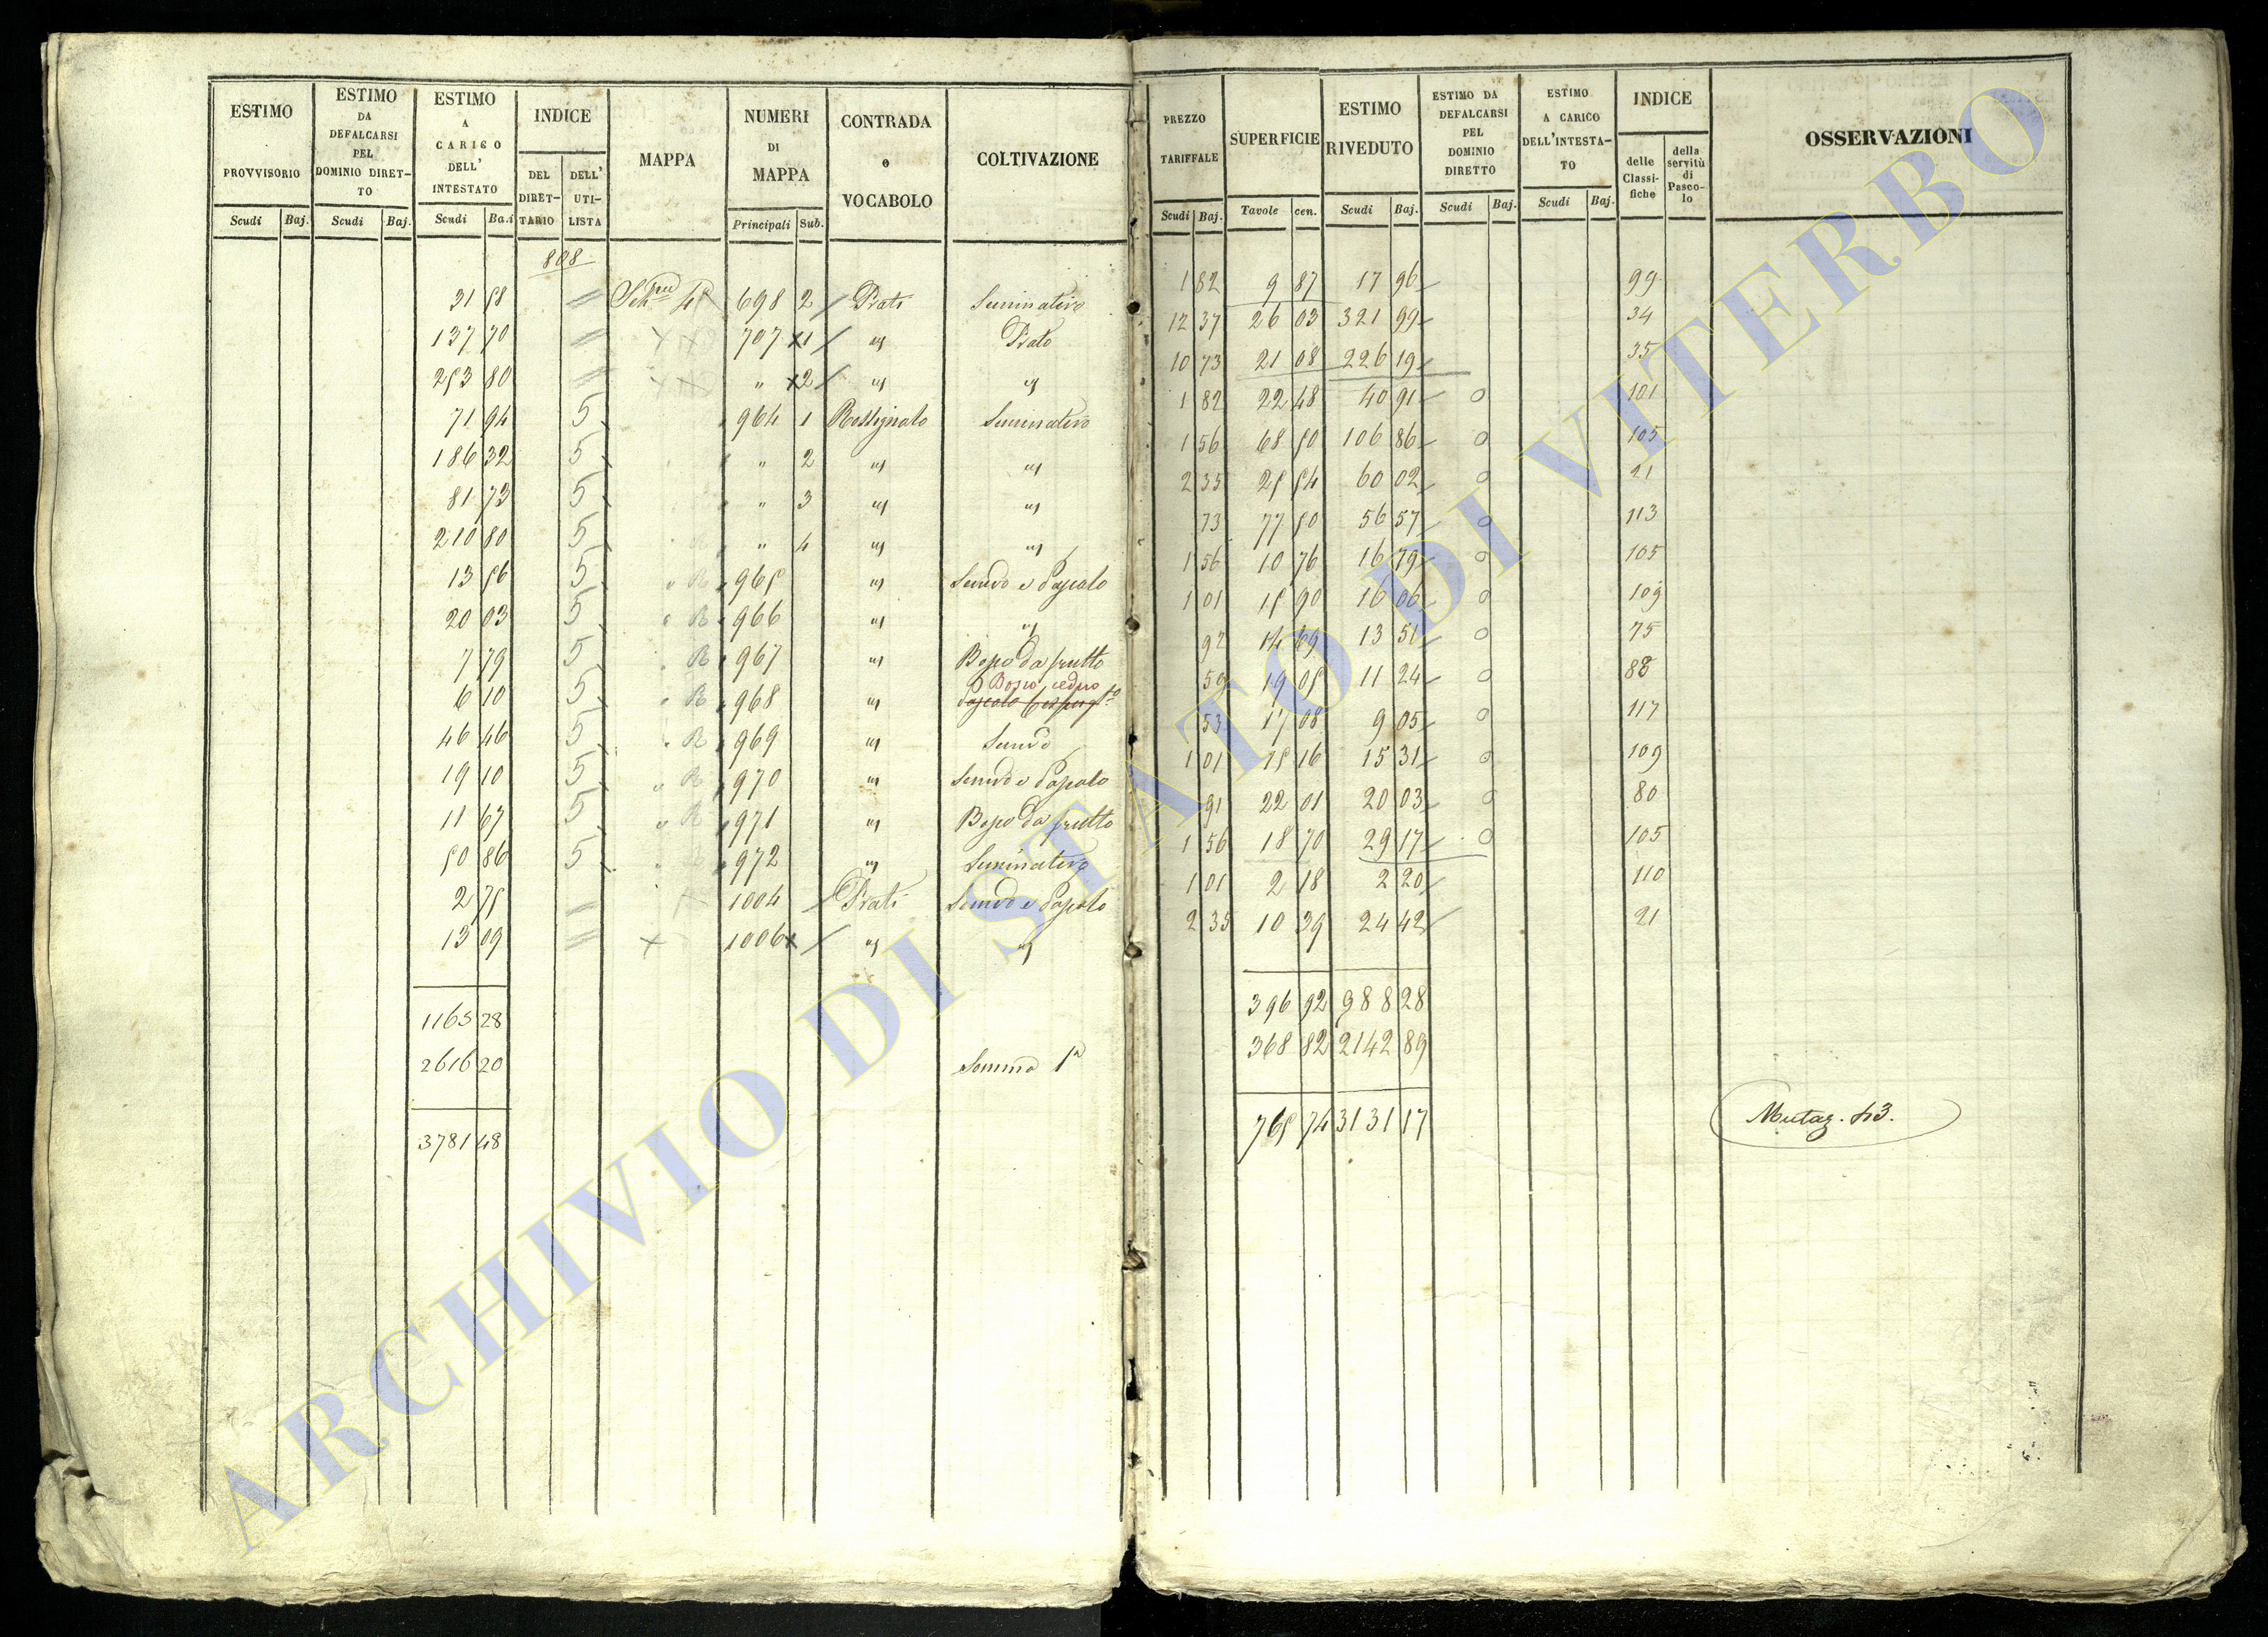 ESTIMO PROVVISORIO | ESTIMO DA DEFALCARSI PEL DOMINIO DIRETTO | ESTIMO A CARICO DELL' INTESTATO | INDICE | MAPPA | NUMERI DI MAPPA | CONTRADA e VOCABOLO | COLTIVAZIONE | PREZZO TARIFFALE | SUPERFICIE | ESTIMO RIVEDUTO | ESTIMO DA DEFALCARSI PEL DOMINIO DIRETTO | ESTIMO A CARICO DELL'INTESTATO | INDICE | OSSERVAZIONI
DEL DIRETTARIO | DELL' UTILISTA | delle Classifiche | della servitù di Pascolo
Scudi | Baj. | Scudi | Baj. | Scudi | Ba.i | Principali | Sub. | Scudi | Baj. | Tavole | cen. | Scudi | Baj. | Scudi | Baj. | Scudi | Baj.
808
31 58 | 698 2 | Prati | Seminativo | 1 82 | 9 87 | 17 96 | 99
137 70 | 707 1 | " | Prato | 12 37 | 26 03 | 321 99 | 34
253 80 | " 2 | " | " | 10 73 | 21 08 | 226 19 | 35
71 94 | 5 | 964 1 | Rossignolo | Seminativo | 1 82 | 22 48 | 40 91 | 0 | 101
186 32 | 5 | " 2 | " | " | 1 56 | 68 50 | 106 86 | 0 | 105
81 73 | 5 | " 3 | " | " | 2 35 | 25 54 | 60 02 | 0 | 21
210 80 | 5 | " 4 | " | " | 73 | 77 50 | 56 57 | 0 | 113
13 56 | 5 | R | 965 | " | Semvo e Pascolo | 1 56 | 10 76 | 16 79 | 0 | 105
20 03 | 5 | R | 966 | " | " | 1 01 | 15 90 | 16 06 | 0 | 109
7 79 | 5 | R | 967 | " | Bosco da frutto | 92 | 14 69 | 13 51 | 0 | 75
Bosco ceduo
6 10 | 5 | R | 968 | " | Pascolo | 59 | 19 05 | 11 24 | 0 | 88
46 46 | 5 | R | 969 | " | Semvo | 53 | 17 08 | 9 05 | 0 | 117
19 10 | 5 | R | 970 | " | Semvo e Pascolo | 1 01 | 15 16 | 15 31 | 0 | 109
11 67 | 5 | R | 971 | " | Bosco da frutto | 91 | 22 01 | 20 03 | 0 | 80
50 86 | 5 | 972 | " | Seminativo | 1 56 | 18 70 | 29 17 | 0 | 105
2 75 | 1004 | Prati | Semvo e Pascolo | 1 01 | 2 18 | 2 20 | 110
13 09 | 1006 | " | " | 2 35 | 10 39 | 24 42 | 21
1165 28 | 396 92 | 988 28
2616 20 | Somma 1a | 368 82 | 2142 89
3781 48 | 765 74 | 3131 17 | Mutaz. 43.
ARCHIVIO DI STATO DI VITERBO